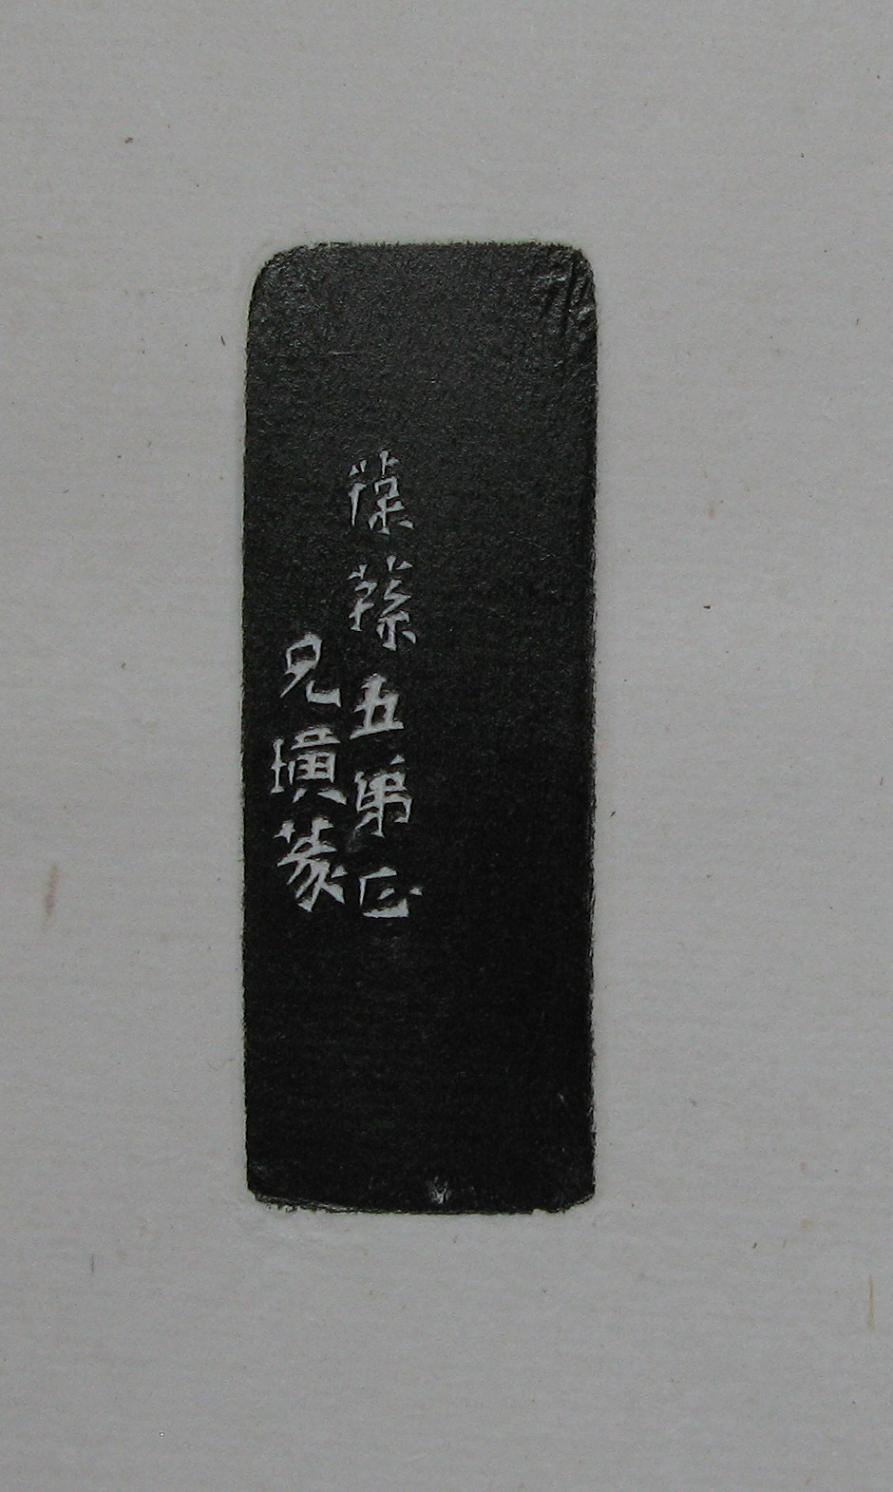 葆蓀五弟正
兄璜篆